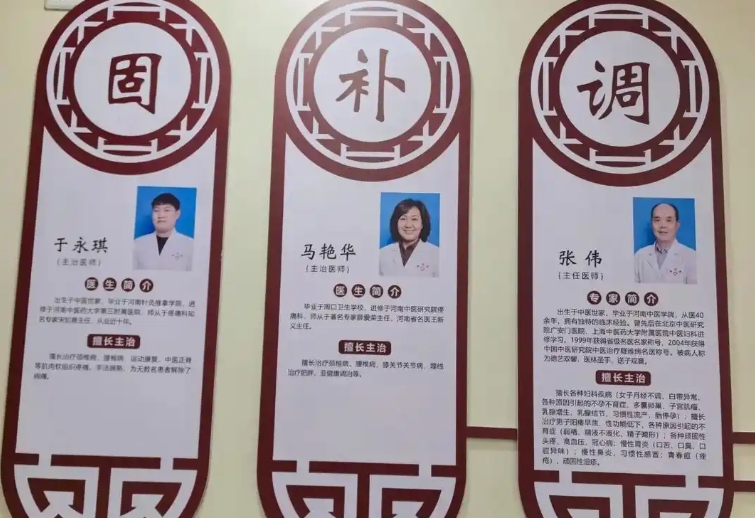 固
于永琪
(主治医师)
医生简介
出生于中医世家，毕业于河南针灸推拿学院，进
修于河南中医药大学第三附属医院，师从于疼痛科知
名专家宋如意主任，从业近十年。
擅长主治
擅长治疗颈椎病、腰椎病、运动康复、中医正骨
等肌肉软组织疼痛，手法娴熟，为无数名患者解除了
病痛。
补
马艳华
(主治医师)
医生简介
毕业于周口卫生学校，进修于河南中医研究院疼
痛科，师从于著名专家
主任，河南省名医王新
义主任。
擅长主治
擅长治疗颈椎病、腰椎病、膝关节关节病、埋线
治疗肥胖、亚健康调治等。
调
张伟
(主任医师)
专家简介
出生于中医世家，毕业于河南中医学院，从医40
余年，拥有独特的临床经验。曾先后在北京中医研究
院广安门医院、上海中医药大学附属医院中医妇科进
修学习，1999年获得省级名医名家称号，2004年获得
中国中医研究院中医治疗疑难病名医称号。被病人称
为德艺双馨、医林圣手、送子观音。
擅长主治
擅长各种妇科疾病（女子月经不调、白带异常、
各种原因引起的不孕不育症、多囊卵巢、子宫肌瘤、
乳腺增生、乳腺结节、习惯性流产、胎停孕），擅长
治疗男子阳痿早泄、性功能低下、各种原因引起的不
育症（弱精、精液不液化、精子畸形）；各种顽固性
头疼、高血压、冠心病；慢性胃炎（口苦、口臭、口
腔异味）；慢性鼻炎、习惯性感冒；青春痘（痤
疮）、顽固性湿疹。